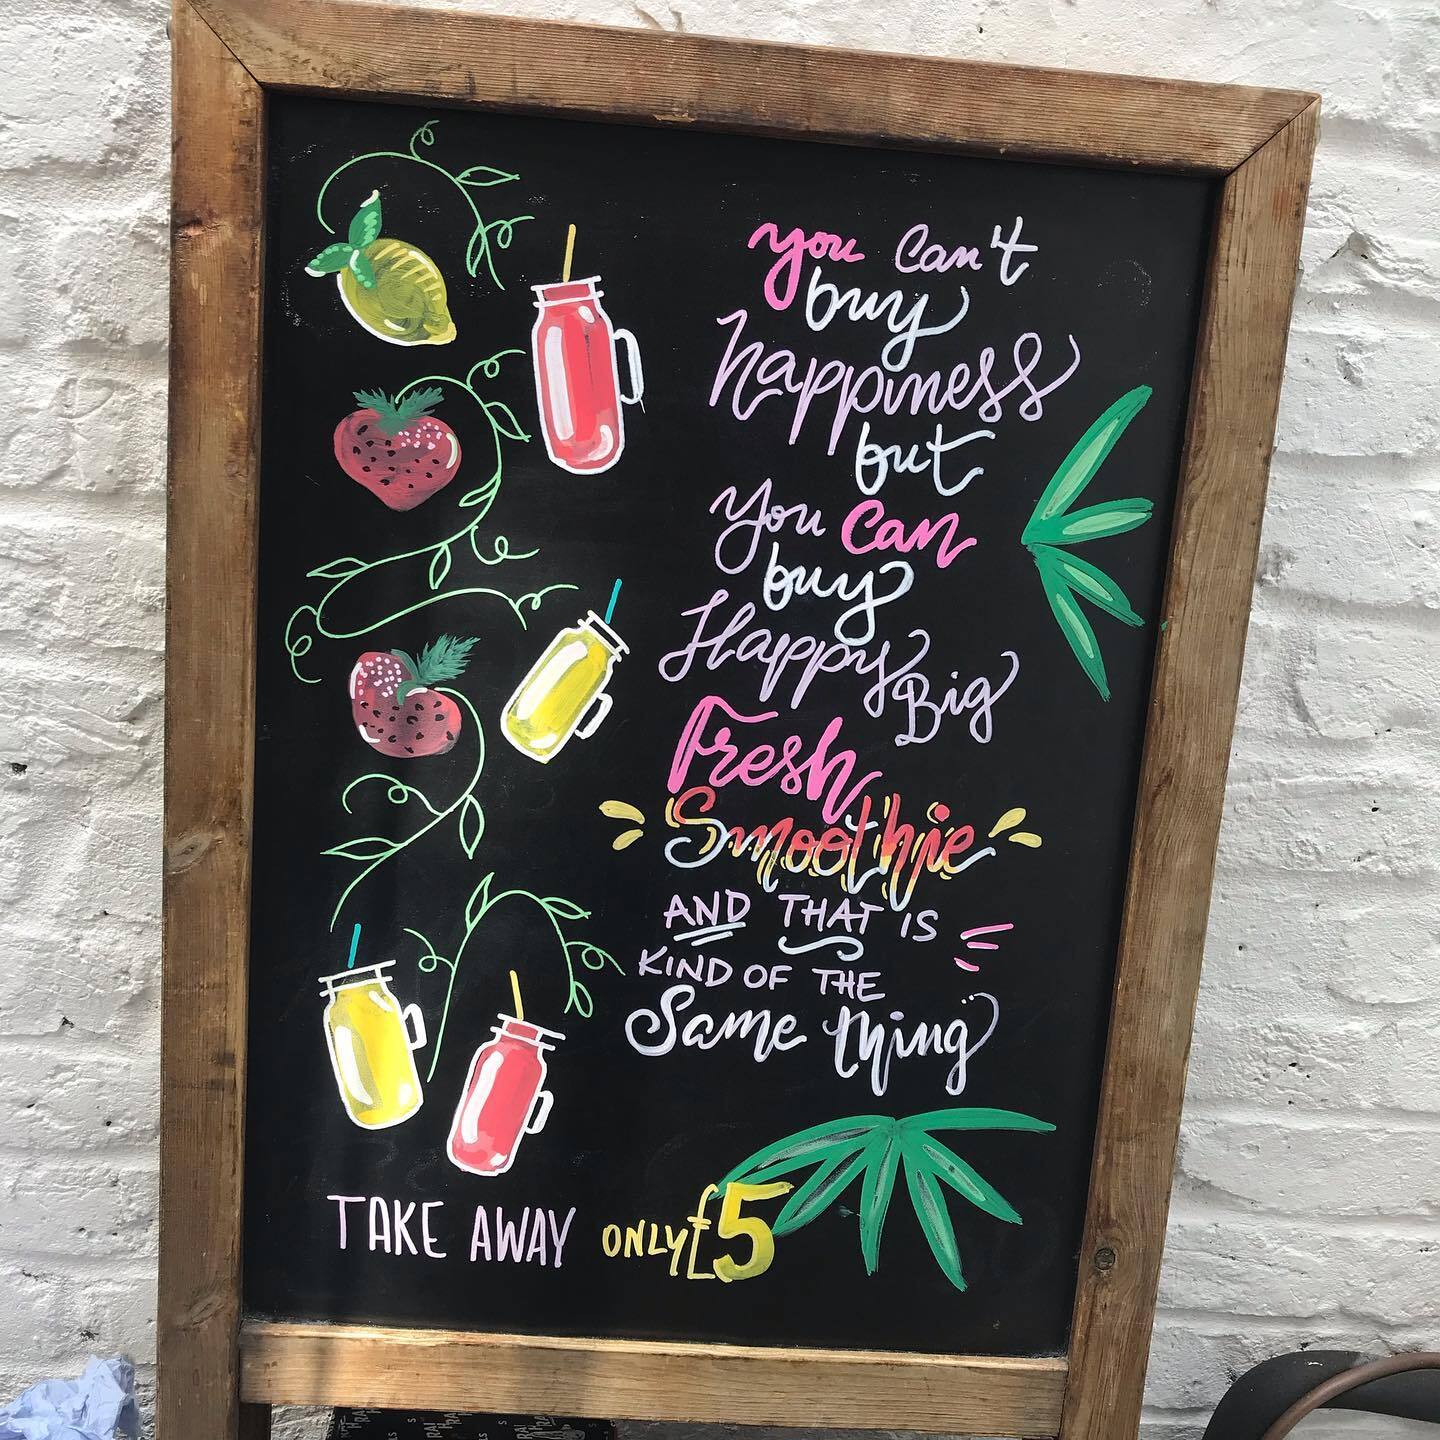 you can't
buy
happiness
but
you can
buy
Happy Big
Fresh
Smoothie
AND THAT IS
KIND OF THE
Same Thing
TAKE AWAY ONLY £5